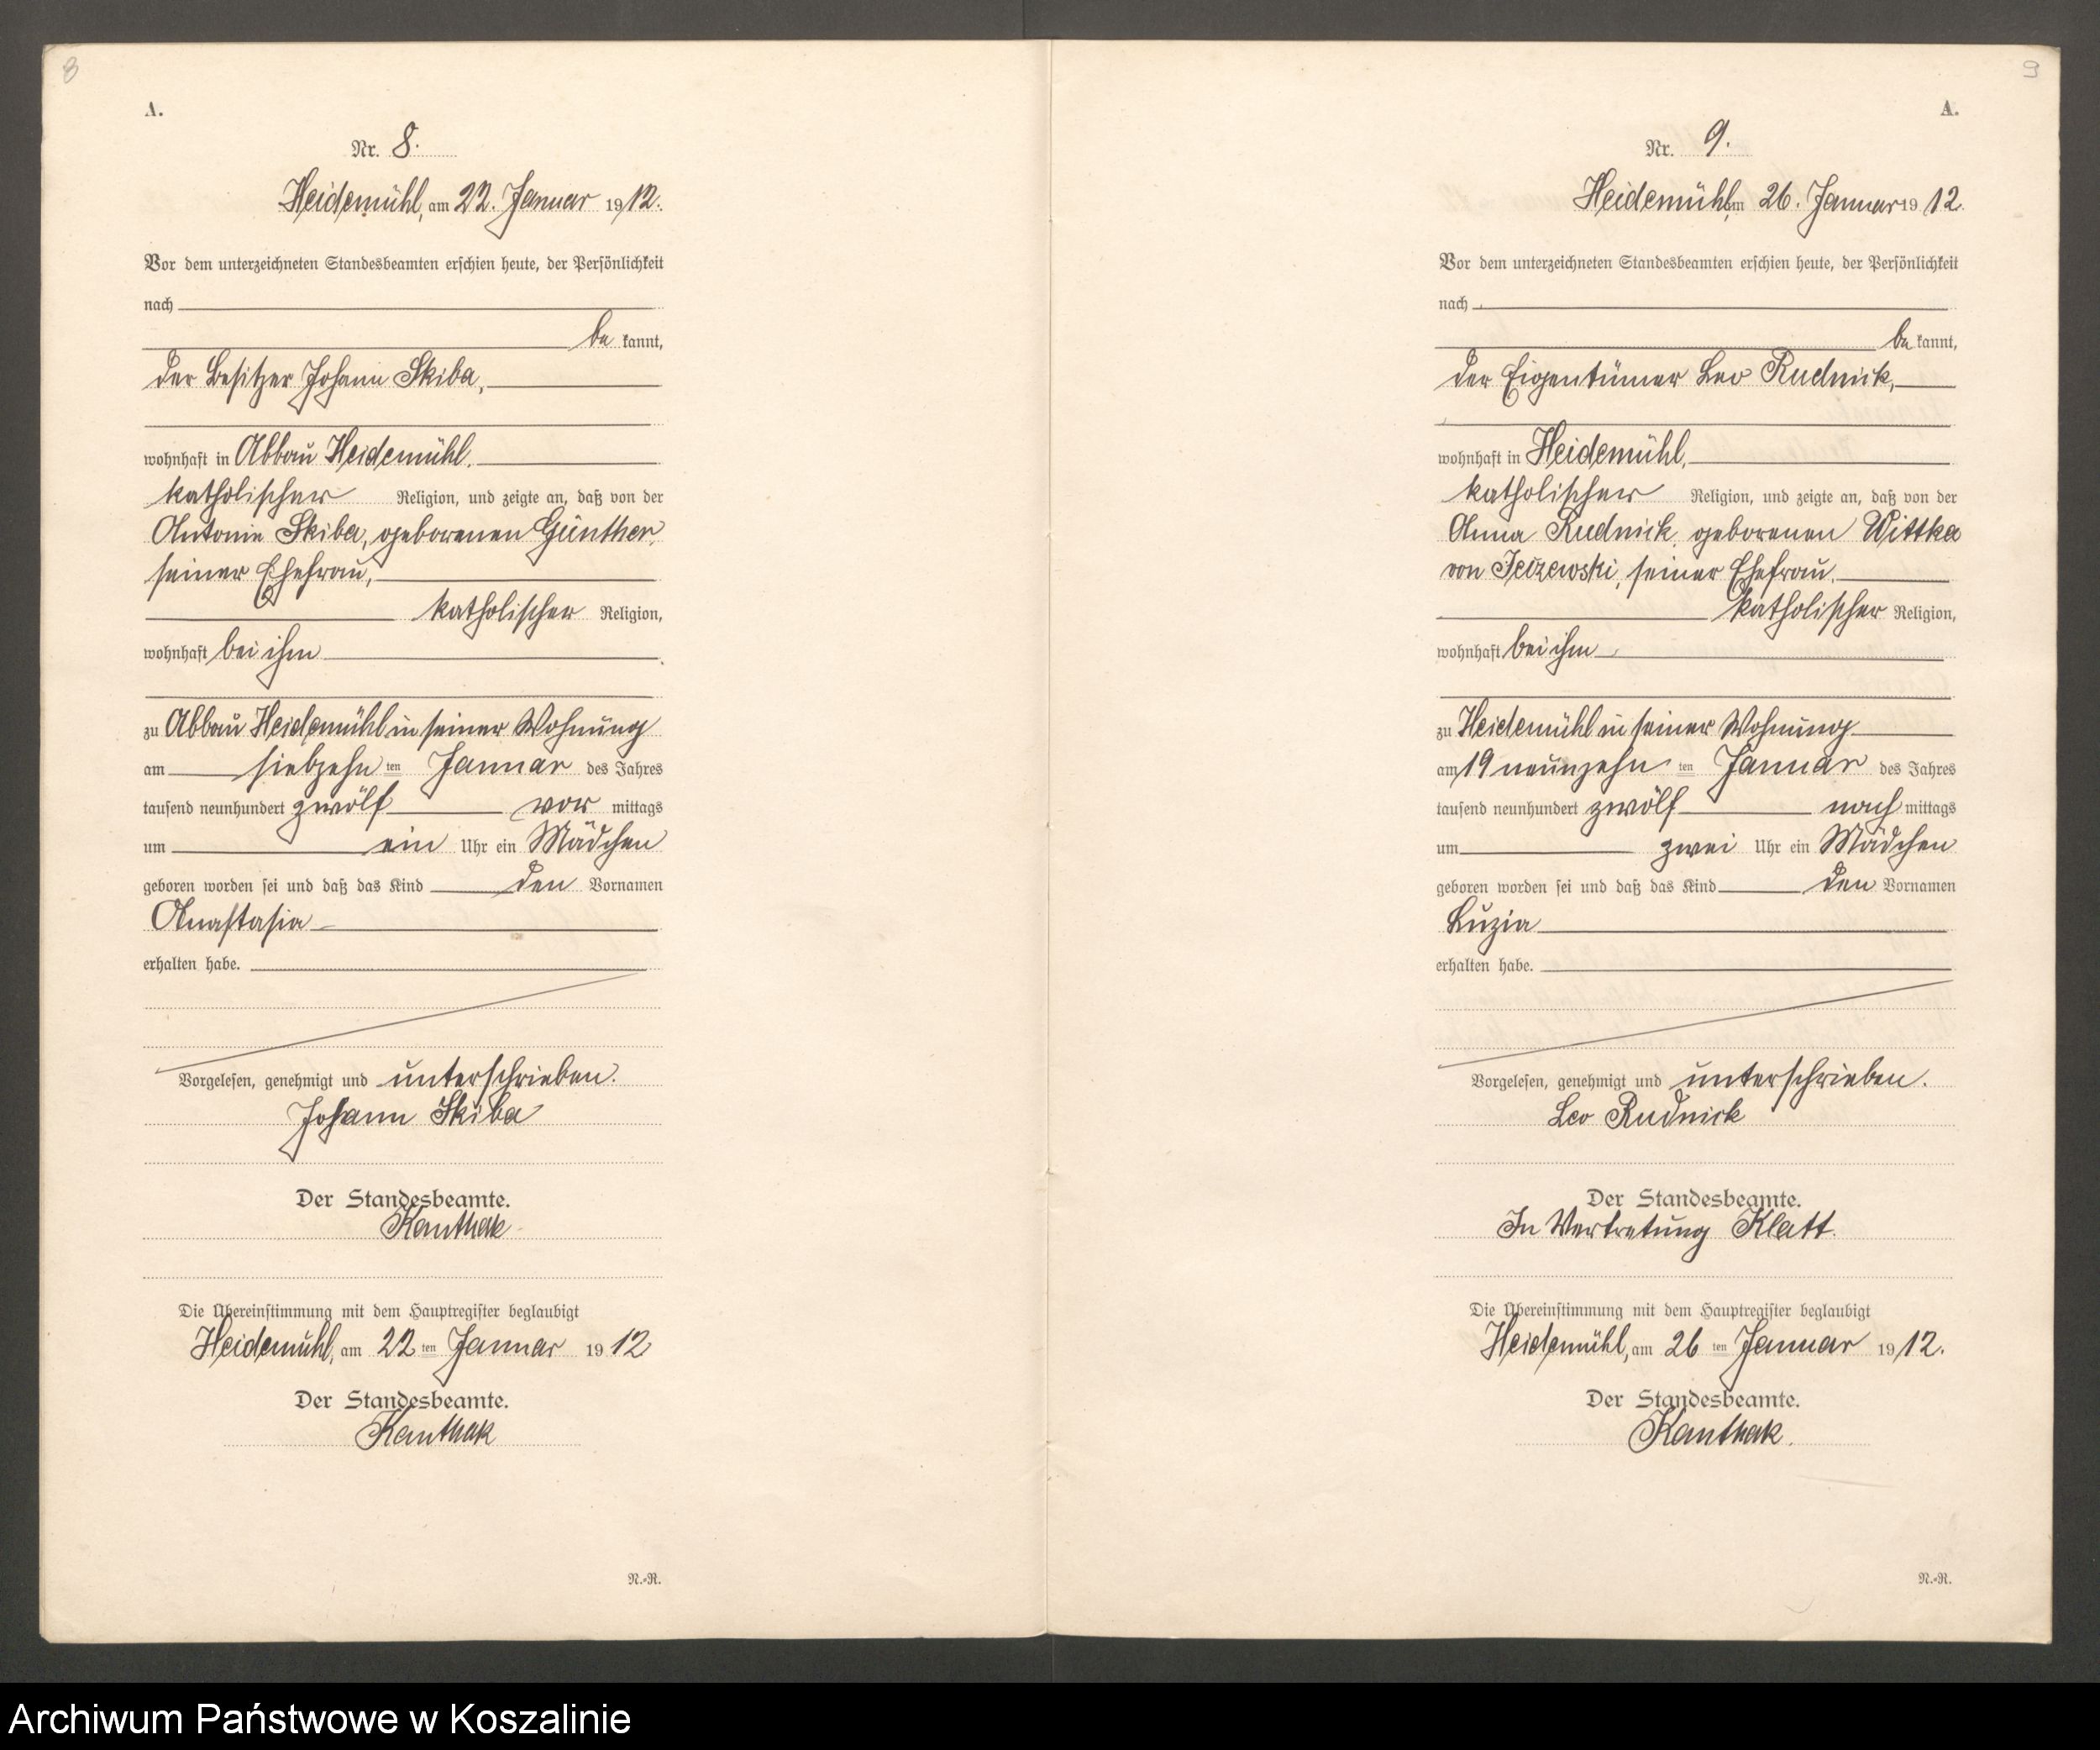 8
A.
Nr. 8.
Heidemühl, am 22. Januar 1912.
Vor dem unterzeichneten Standesbeamten erschien heute, der Persönlichkeit
nach
be kannt,
der Besitzer Johann Skiba,
wohnhaft in Abbau Heidemühl,
katholischer Religion, und zeigte an, daß von der
Antonie Skiba, geborenen Günther,
seiner Ehefrau,
katholischer Religion,
wohnhaft bei ihm
zu Abbau Heidemühl in seiner Wohnung
am siebzehn ten Januar des Jahres
tausend neunhundert zwölf vor mittags
um ein Uhr ein Mädchen
geboren worden sei und daß das Kind den Vornamen
Anastasia
erhalten habe.
Vorgelesen, genehmigt und unterschrieben.
Johann Skiba
Der Standesbeamte.
Kanthak
Die Übereinstimmung mit dem Hauptregister beglaubigt
Heidemühl, am 22 ten Januar 1912
Der Standesbeamte.
Kanthak
N.-R.
9
A.
Nr. 9.
Heidemühl, am 26. Januar 1912.
Vor dem unterzeichneten Standesbeamten erschien heute, der Persönlichkeit
nach
be kannt,
der Eigentümer Leo Rudnick,
wohnhaft in Heidemühl,
katholischer Religion, und zeigte an, daß von der
Anna Rudnick geborenen Wittka
von , seiner Ehefrau,
katholischer Religion,
wohnhaft bei ihm
zu Heidemühl in seiner Wohnung
am 19 neunzehn ten Januar des Jahres
tausend neunhundert zwölf nach mittags
um zwei Uhr ein Mädchen
geboren worden sei und daß das Kind den Vornamen
Luzia
erhalten habe.
Vorgelesen, genehmigt und unterschrieben.
Leo Rudnick
Der Standesbeamte.
In Vertretung Klatt.
Die Übereinstimmung mit dem Hauptregister beglaubigt
Heidemühl, am 26 ten Januar 1912.
Der Standesbeamte.
Kanthak.
N.-R.
Archiwum Państwowe w Koszalinie